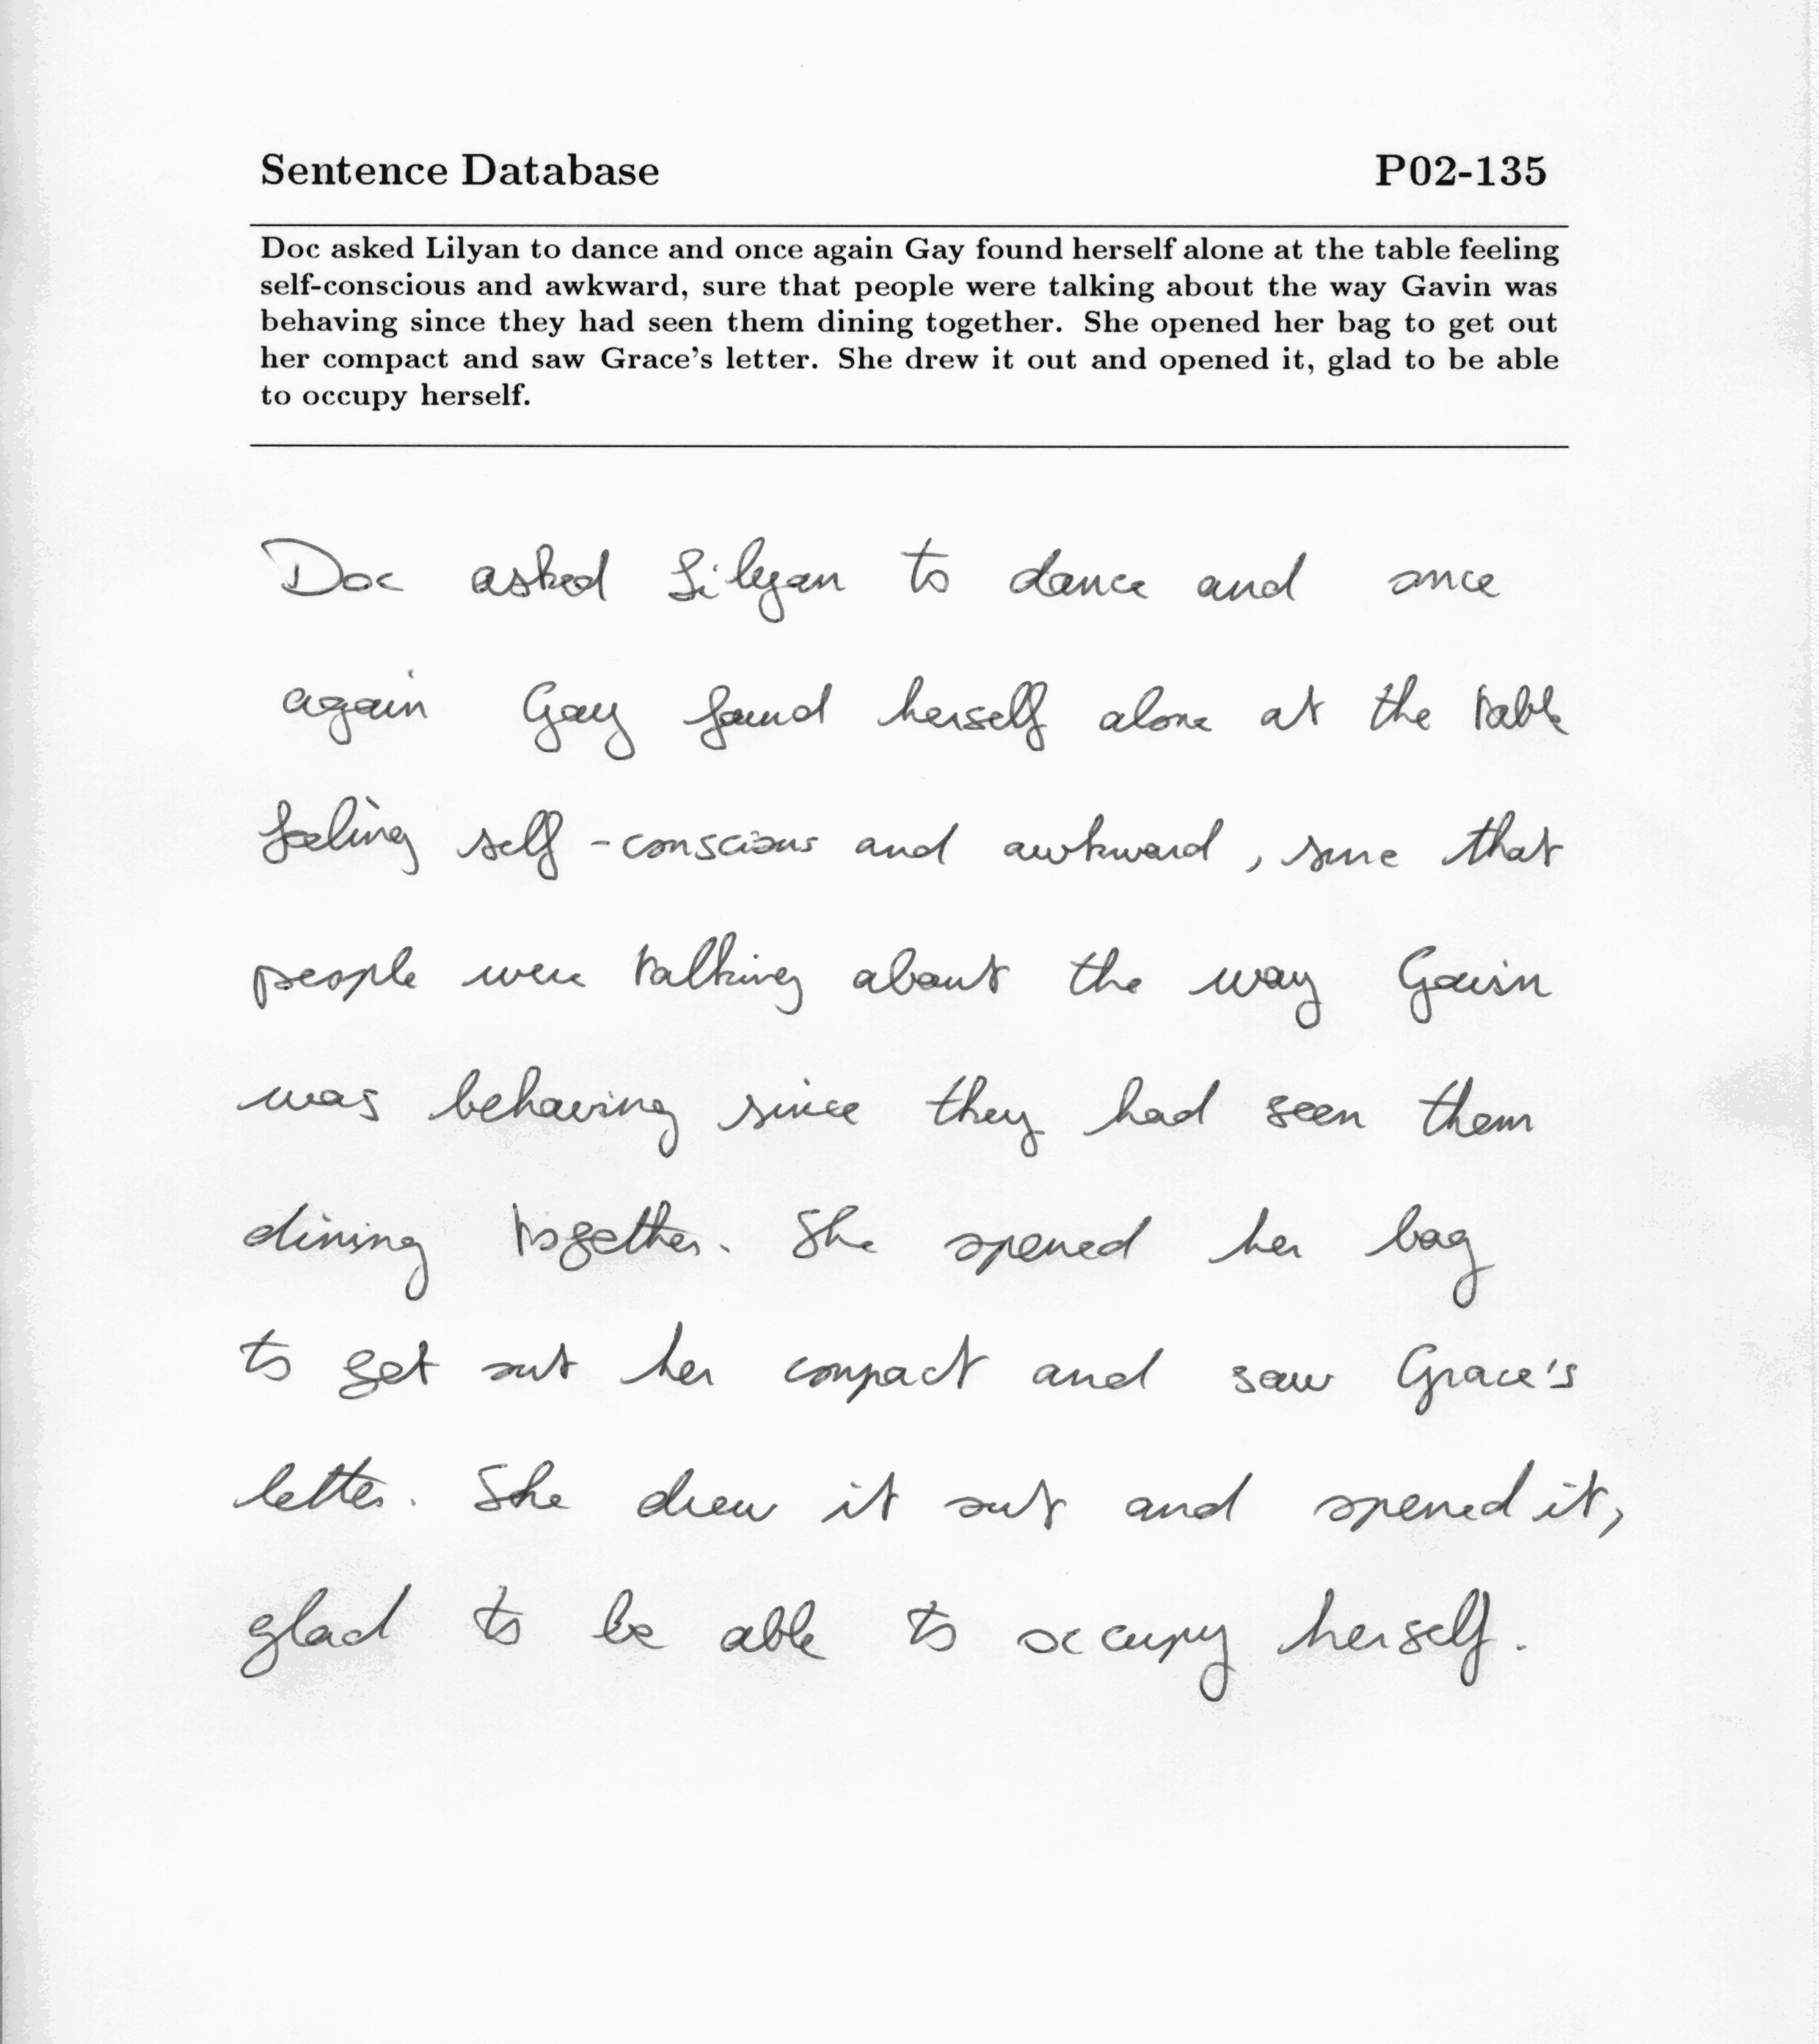 Sentence Database P02-135
Doc asked Lilyan to dance and once again Gay found herself alone at the table feeling
self-conscious and awkward, sure that people were talking about the way Gavin was
behaving since they had seen them dining together. She opened her bag to get out
her compact and saw Grace's letter. She drew it out and opened it, glad to be able
to occupy herself.
Doc asked Lilyan to dance and once
again Gay found herself alone at the table
feeling self-conscious and awkward, sure that
people were talking about the way Gavin
was behaving since they had seen them
dining together. She opened her bag
to get out her compact and saw Grace's
letter. She drew it out and opened it,
glad to be able to occupy herself.